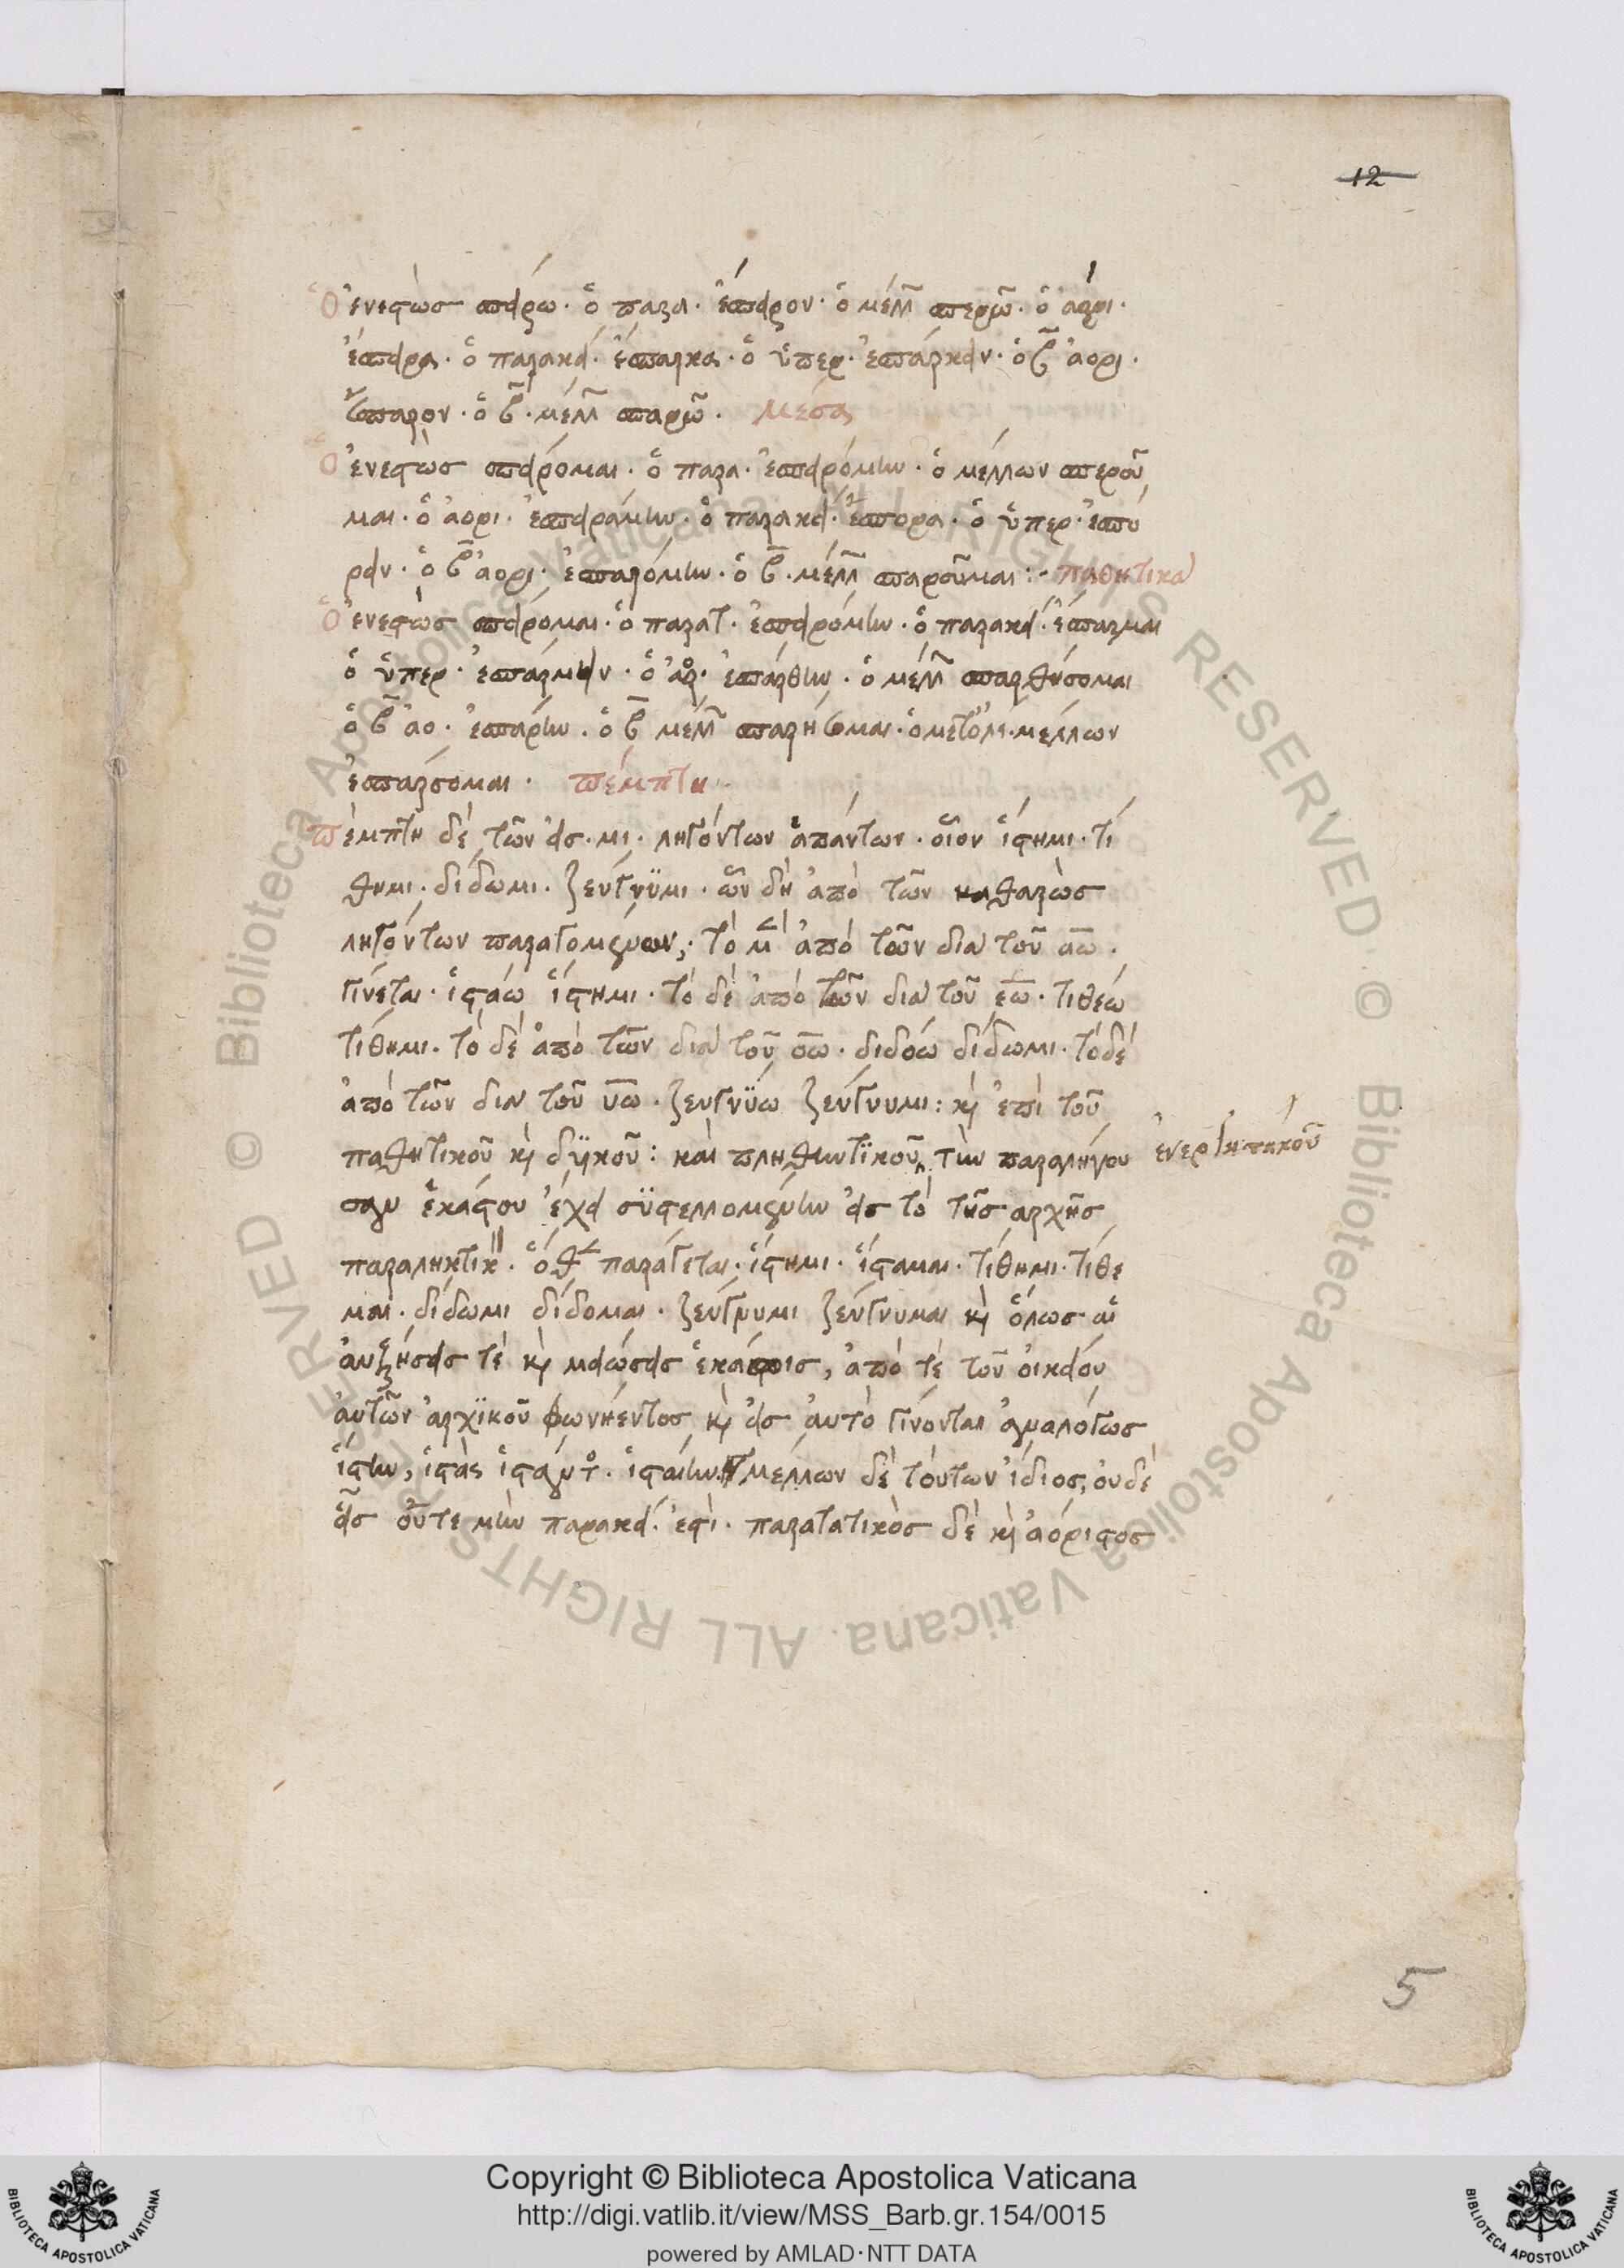 12
Ὁ ἐνεστὼς σπείρω· ὁ παρα· ἔσπειρον· ὁ μέλλ σπερῶ· ὁ ἀόρι·
ἔσπειρα· ὁ παρακεί· ἔσπαρκα· ὁ ὑπερ· ἐσπάρκειν· ὁ β̄ ἀορι·
ἔσπαρον· ὁ β̄· μέλλ σπαρῶ· μέσα
Ὁ ἐνεστὼς σπείρομαι· ὁ παρα· ἐσπειρόμην· ὁ μέλλων σπεροῦ
μαι· ὁ ἀορι· ἐσπειράμην· ὁ παρακεί· ἔσπορα· ὁ ὑπερ· ἐσπό
ρειν· ὁ β̄ ἀορι· ἐσπαρόμην· ὁ β̄· μέλλ σπαροῦμαι:· παθητικὰ
Ὁ ἐνεστὼς σπείρομαι· ὁ παρατ· ἐσπειρόμην· ὁ παρακεί· ἔσπαρμαι
ὁ ὑπερ· ἐσπάρμην· ὁ ἀορ· ἐσπάρθην· ὁ μέλλ σπαρθήσομαι
ὁ β̄ ἀο· ἐσπάρην· ὁ β̄ μέλλ σπαρήσομαι· ὁ μετ ὀλί· μέλλων
ἐσπαρσομαι· πέμπτη
πέμπτη δὲ τῶν εἰς· μι· ληγόντων ἁπάντων· οἷον ἵστημι· τί
θημι· δίδωμι· ζεύγνϋμι· ὧν δὴ ἀπὸ τῶν καθαρῶς
ληγόντων παραγομένων, τὸ μ ἀπὸ τῶν διὰ τοῦ αω·
γίνεται· ἱστάω ἵστημι· τὸ δὲ ἀπὸ τῶν διὰ τοῦ εω· τιθέω
τίθημι· τὸ δὲ ἀπὸ τῶν διὰ τοῦ οω· διδόω δίδωμι· τὸ δὲ
ἀπὸ τῶν διὰ τοῦ υω· ζευγνϋω ζεύγνυμι: κὶ ἐπὶ τοῦ
παθητικοῦ κὶ δϋικοῦ: καὶ πληθωτϊκοῦ, τὴν παραλήγου ἐνεργητικοῦ
σαν ἑκάστου ἔχει σϋστελλομένην εἰς τὸ τῆς ἀρχῆς
παραληκτικ· ὅθ παράγεται· ἵστημι· ἵσταμαι· τίθημι· τίθε
μαι· δίδωμι δίδομαι· ζεύγνυμι ζεύγνυμαι κὶ ὅλως αἱ
αὐξήσεις τὲ κὶ μειώσεις ἑκάστοις, ἀπό τὲ τοῦ οἰκείου
αὐτῶν ἀρχϊκοῦ φωνήεντος κὶ εἰς αὐτὸ γίνονται ἀναλόγως
ἵστην, ἱστὰς ἱστάντ· ἱσταίην μέλλων δὲ τούτων ἴδιος, οὐδὲ
εἷς οὔτε μὴν παρακεί· ἐστὶ· παρατατικὸς δὲ κὶ ἀόριστος
5
Copyright © Biblioteca Apostolica Vaticana
http://digi.vatlib.it/view/MSS_Barb.gr.154/0015
powered by AMLAD·NTT DATA
BIBLIOTECA APOSTOLICA VATICANA
BIBLIOTECA APOSTOLICA VATICANA
© Biblioteca Apostolica Vaticana ALL RIGHTS RESERVED © Biblioteca Apostolica Vaticana ALL RIGHTS RESERVED